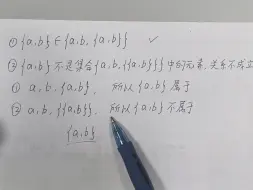 ① {a,b} ∈ {a,b,{a,b}} ✓
② {a,b} 不是集合{a,b,{{a,b}}}中的元素,关系不成立
① a, b, {a,b}, 所以{a,b}属于
② a, b, {{a,b}}, 所以{a,b}不属于
{a,b}